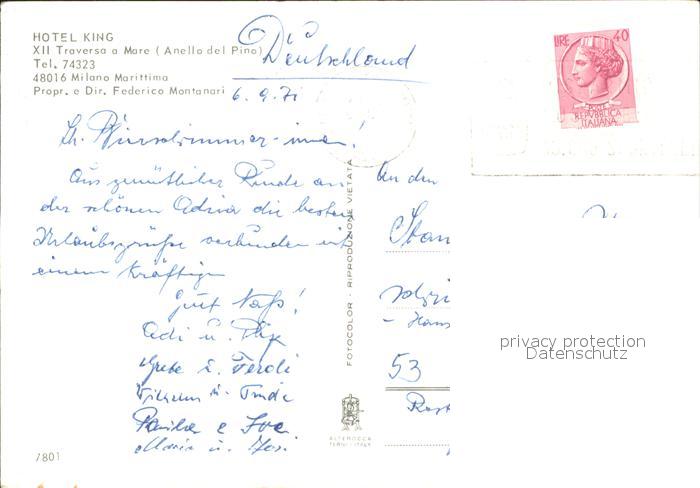 HOTEL KING
XII Traversa a Mare (Anello del Pino)
Tel. 74323
48016 Milano Marittima
Propr. e Dir. Federico Montanari
Deutschland
6.9.71
Aus gemütlicher Runde an
der schönen Adria die besten
Urlaubsgrüße verbunden mit
einem kräftigen
gut Naß!
Adi u.
Grete u. Ferdi
u. Trude
e
Maria u.
7801
FOTOCOLOR - RIPRODUZIONE VIETATA
ALTEROCCA
TERNI-ITALY
LIRE 40
POSTE
REPVBBLICA
ITALIANA
An den
- Hans
53
privacy protection
Datenschutz